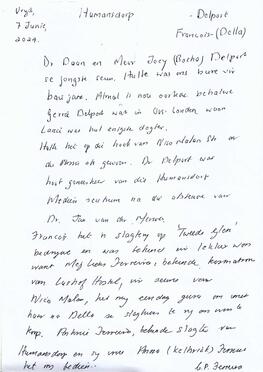 Vryd, Humansdorp - Delport
7 Junie, Francois-(Della)
2024.
Dr Daan en Mevr Joey (Botha) Delport
se jongste seun. Hulle was ons bure vir
baie jare. Almal is nou oorlede behalwe
Gerrie Delport wat in Oos-Londen woon
Lanci was hul enigste dogter.
Hulle het op die hoek van Nico Malan Str en
du Plessis str gewoon. Dr Delport was
hoof geneesheer van die Humansdorp
Mediese sentrum na die aftrede van
Dr. Jan van der Merwe
Francois het 'n slaghuis op Tweede
bedryf en was bekend vir lekker wors
want Mej Ferreira, bekende kosmatrone
van Hostel, vir seuns van
Nico Malan, het my eendag gevra om met
haar na Della se slaghuis te ry om wors te
koop. Ferreira, bekende slagter van
Humansdorp en sy vrou Anna
het ons bedien.